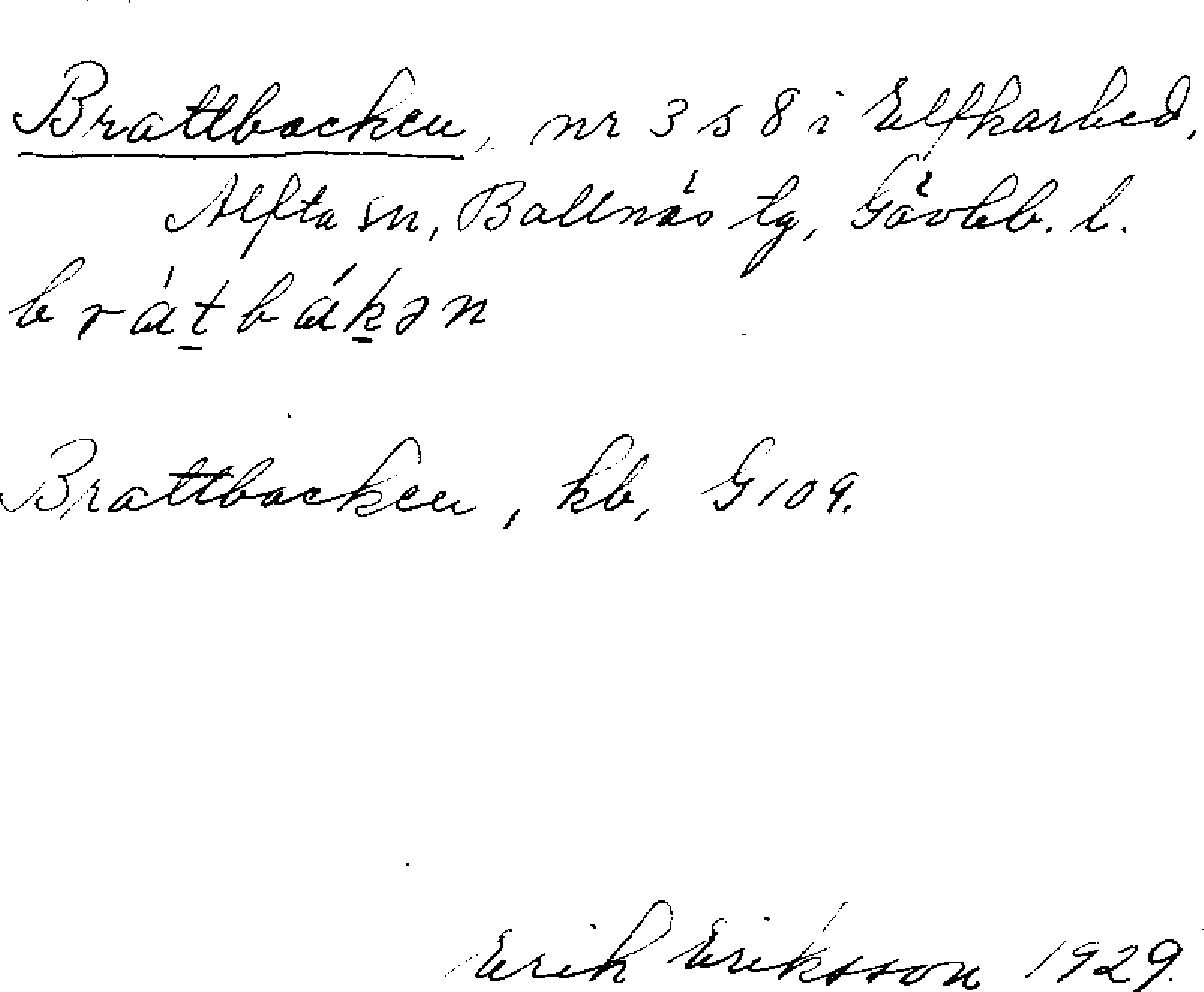 Brattbacken, nr 3 s 8 i Elfkarhed,
Alfta sn, Bollnäs tg, Gävleb. l.
brátbákən
Brattbacken, kb, G 109.
Erik Eriksson 1929.